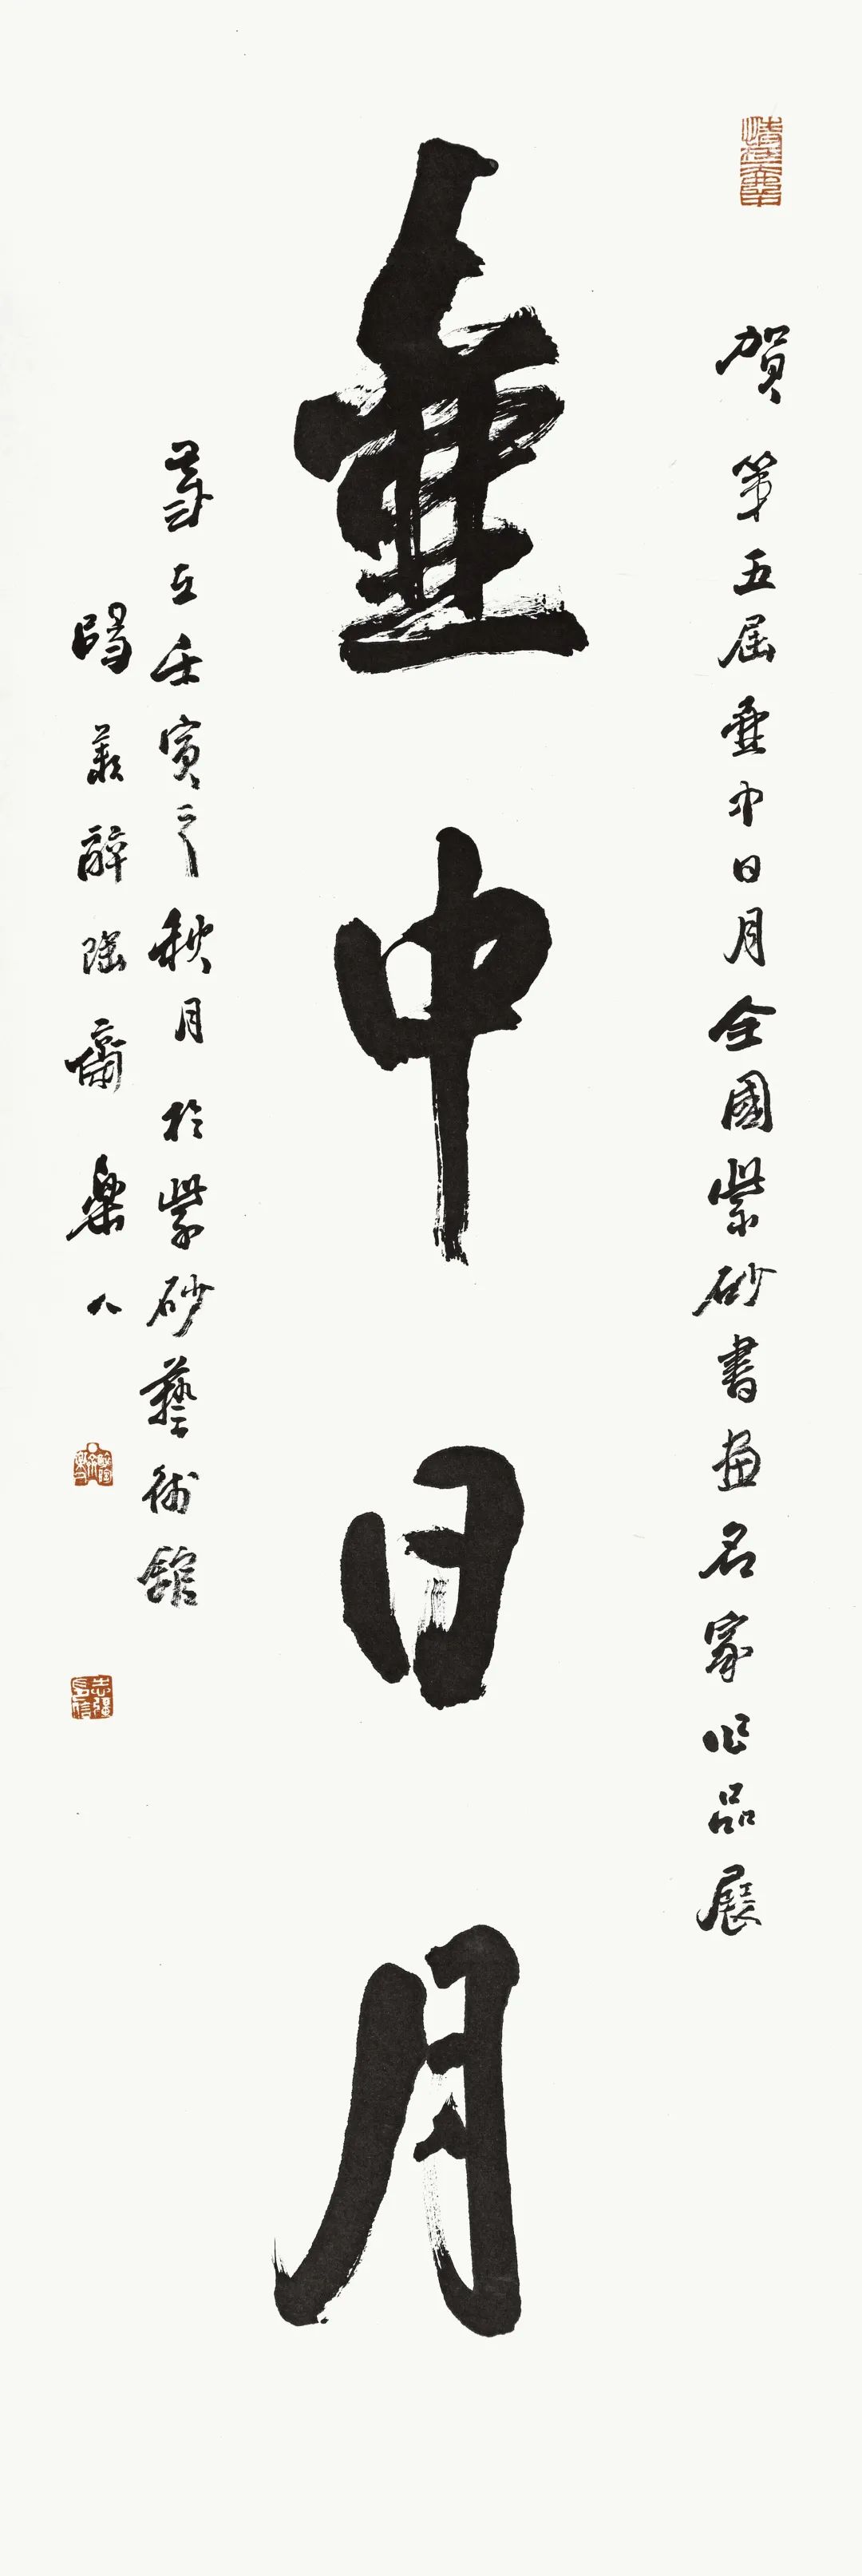 賀第五屆壺中日月全國紫砂書畫名家作品展
壺中日月
歲在壬寅之秋月於紫砂藝術館
陽羨醉陶齋樂人